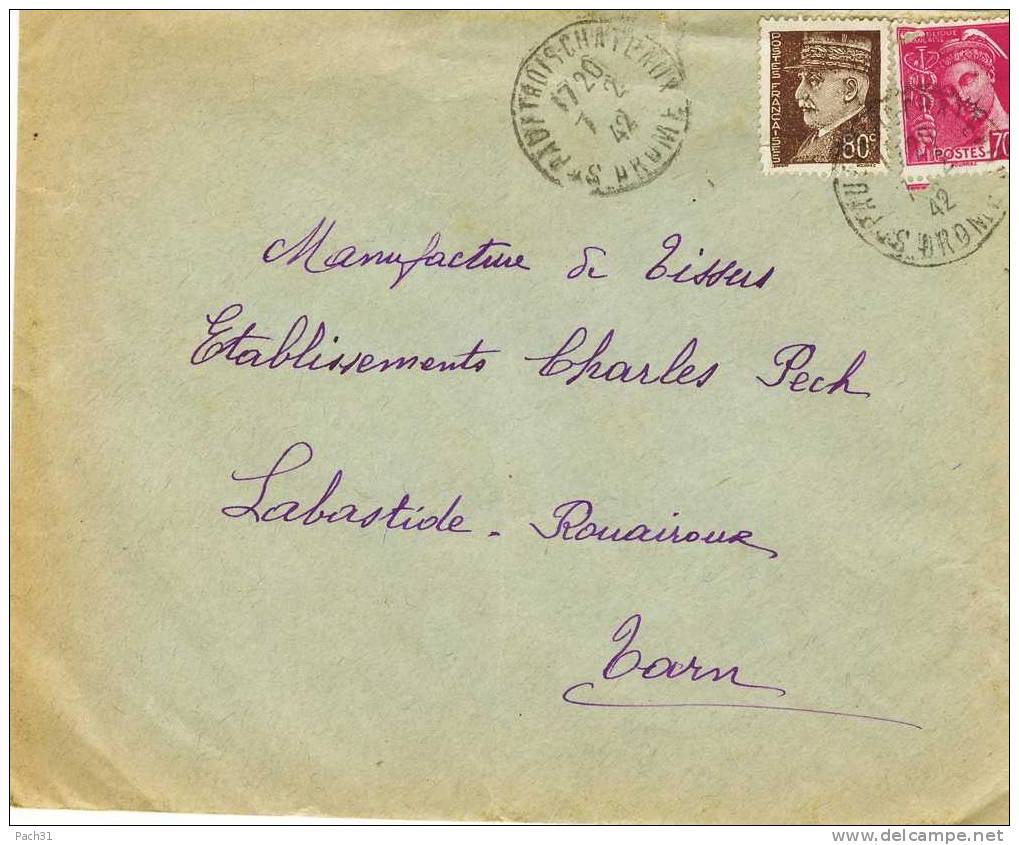 ST PAUL TROIS-CHATEAUX
DROME
1720
7 2
42
POSTES FRANÇAISES
80c
POSTES
70
42
DROME
Manufacture de Tissus
Etablissements Charles Pech
Labastide - Rouairoux
Tarn
Pach31
www.delcampe.net